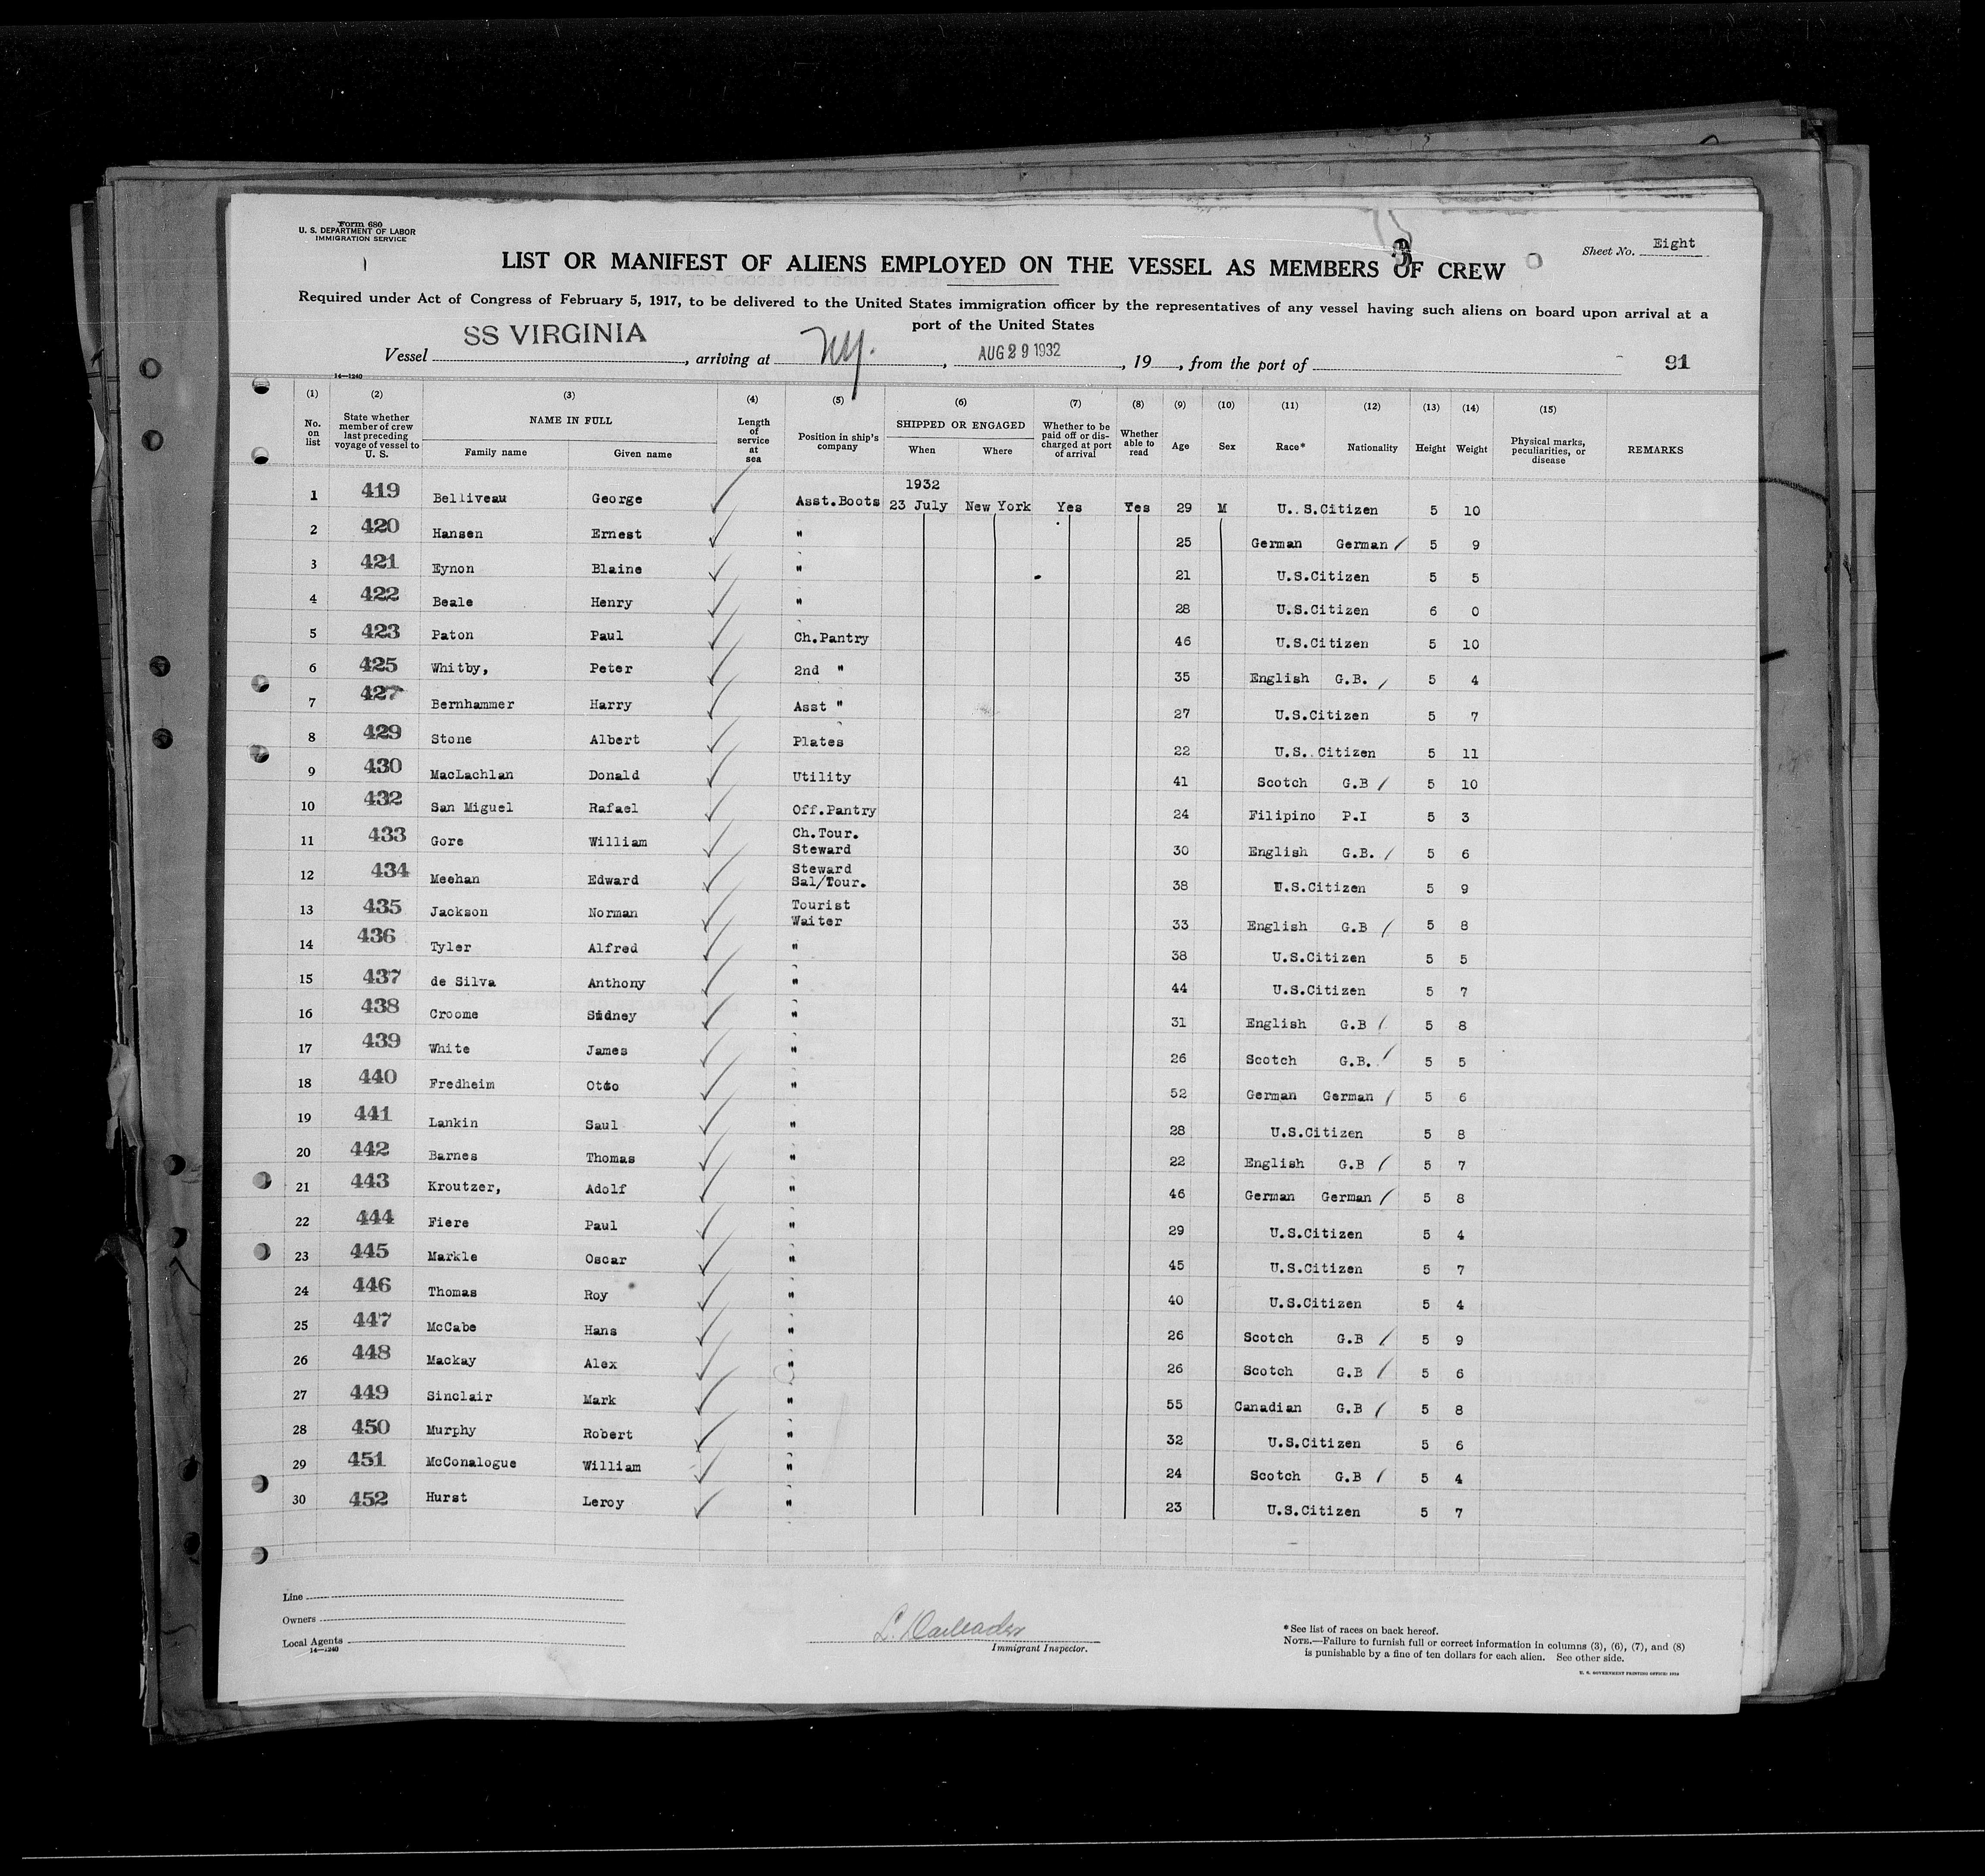 Form 680
U. S. DEPARTMENT OF LABOR
IMMIGRATION SERVICE
Sheet No. Eight
LIST OR MANIFEST OF ALIENS EMPLOYED ON THE VESSEL AS MEMBERS OF CREW
Required under Act of Congress of February 5, 1917, to be delivered to the United States immigration officer by the representatives of any vessel having such aliens on board upon arrival at a
port of the United States
Vessel SS VIRGINIA, arriving at NY., AUG 29 1932, 19, from the port of 91
14—1240
(1) (2) (3) (4) (5) (6) (7) (8) (9) (10) (11) (12) (13) (14) (15)
No. on list State whether member of crew last preceding voyage of vessel to U. S. NAME IN FULL Family name Given name Length of service at sea Position in ship's company SHIPPED OR ENGAGED When Where Whether to be paid off or discharged at port of arrival Whether able to read Age Sex Race* Nationality Height Weight Physical marks, peculiarities, or disease REMARKS
1932
1 419 Belliveau George Asst.Boots 23 July New York Yes Yes 29 M U.S.Citizen 5 10
2 420 Hansen Ernest " 25 German German 5 9
3 421 Eynon Blaine " 21 U.S.Citizen 5 5
4 422 Beale Henry " 28 U.S.Citizen 6 0
5 423 Paton Paul Ch.Pantry 46 U.S.Citizen 5 10
6 425 Whitby, Peter 2nd " 35 English G.B. 5 4
7 427 Bernhammer Harry Asst " 27 U.S.Citizen 5 7
8 429 Stone Albert Plates 22 U.S. Citizen 5 11
9 430 MacLachlan Donald Utility 41 Scotch G.B 5 10
10 432 San Miguel Rafael Off.Pantry 24 Filipino P.I 5 3
11 433 Gore William Ch.Tour. Steward 30 English G.B. 5 6
12 434 Meehan Edward Steward Sal/Tour. 38 U.S.Citizen 5 9
13 435 Jackson Norman Tourist Waiter 33 English G.B 5 8
14 436 Tyler Alfred " 38 U.S.Citizen 5 5
15 437 de Silva Anthony " 44 U.S.Citizen 5 7
16 438 Croome Sidney " 31 English G.B 5 8
17 439 White James " 26 Scotch G.B. 5 5
18 440 Fredheim Otto " 52 German German 5 6
19 441 Lankin Saul " 28 U.S.Citizen 5 8
20 442 Barnes Thomas " 22 English G.B 5 7
21 443 Kroutzer, Adolf " 46 German German 5 8
22 444 Fiere Paul " 29 U.S.Citizen 5 4
23 445 Markle Oscar " 45 U.S.Citizen 5 7
24 446 Thomas Roy " 40 U.S.Citizen 5 4
25 447 McCabe Hans " 26 Scotch G.B 5 9
26 448 Mackay Alex " 26 Scotch G.B 5 6
27 449 Sinclair Mark " 55 Canadian G.B 5 8
28 450 Murphy Robert " 32 U.S.Citizen 5 6
29 451 McConalogue William " 24 Scotch G.B 5 4
30 452 Hurst Leroy " 23 U.S.Citizen 5 7
Line
Owners
Local Agents
14—1240
Immigrant Inspector.
*See list of races on back hereof.
NOTE.—Failure to furnish full or correct information in columns (3), (6), (7), and (8)
is punishable by a fine of ten dollars for each alien. See other side.